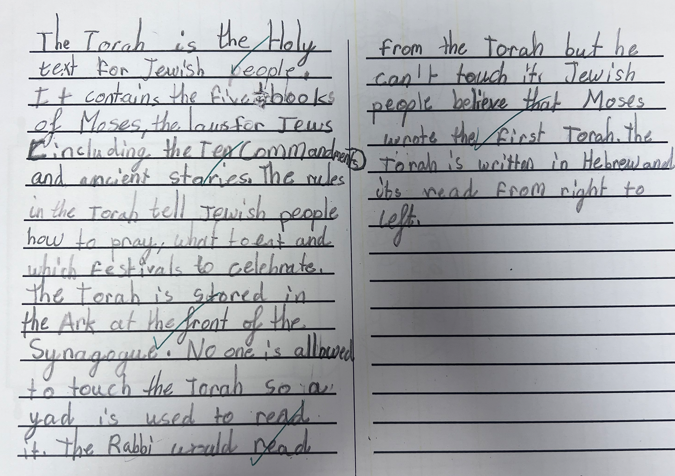 The Torah is the Holy
text for Jewish people.
It contains the five books
of Moses, the laws for Jews
including the Ten Commandments
and ancient stories. The rules
in the Torah tell Jewish people
how to pray, what to eat and
which festivals to celebrate.
The Torah is stored in
the Ark at the front of the
Synagogue. No one is allowed
to touch the Torah so a
yad is used to read
it. The Rabbi would read
from the Torah but he
can't touch it. Jewish
people believe that Moses
wrote the first Torah. The
Torah is written in Hebrew and
its read from right to
left.